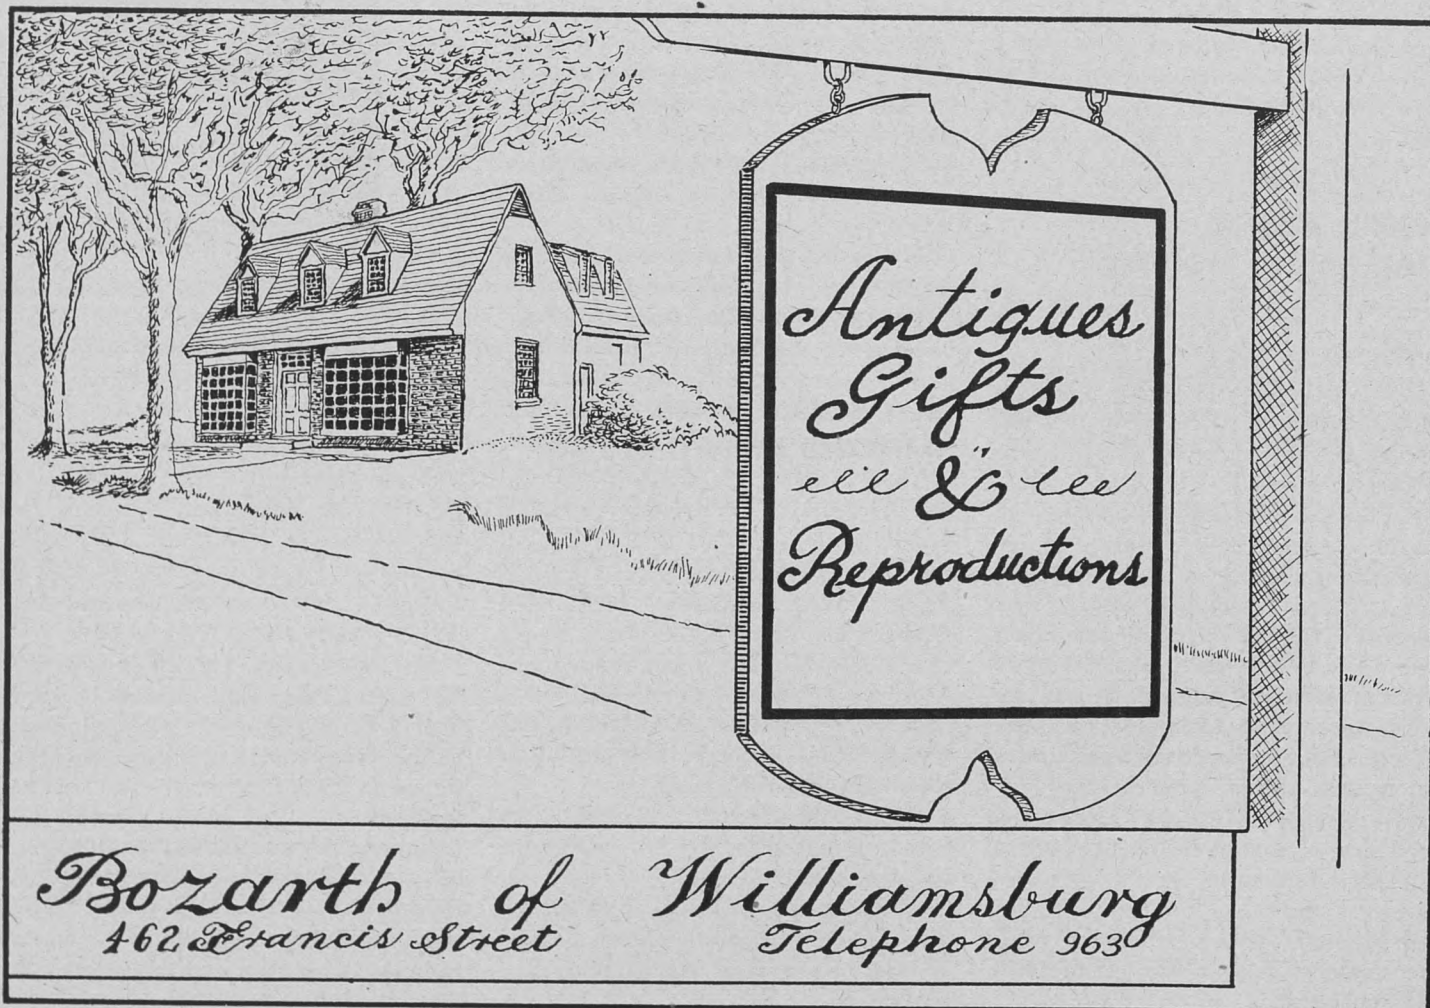 Antiques
Gifts
&
Reproductions
Bozarth of Williamsburg
462 Francis Street Telephone 963